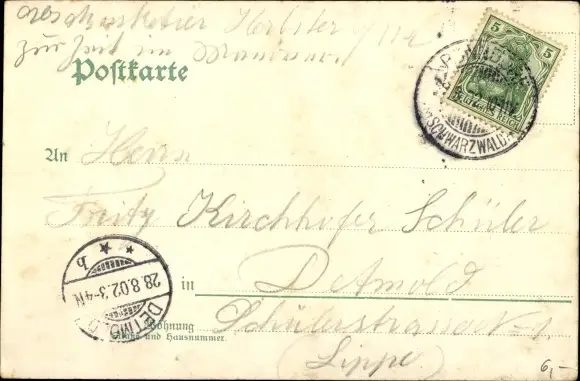 zur Zeit im Manöver
Postkarte
5 5
DEUTSCHES REICH
SCHWARZWALD
An Herrn
Fritz Kirchhofer Schüler
in Detmold
DETMOLD
28.8.02.3-4N.
b
Wohnung
Straße und Hausnummer
(Lippe)
6,-